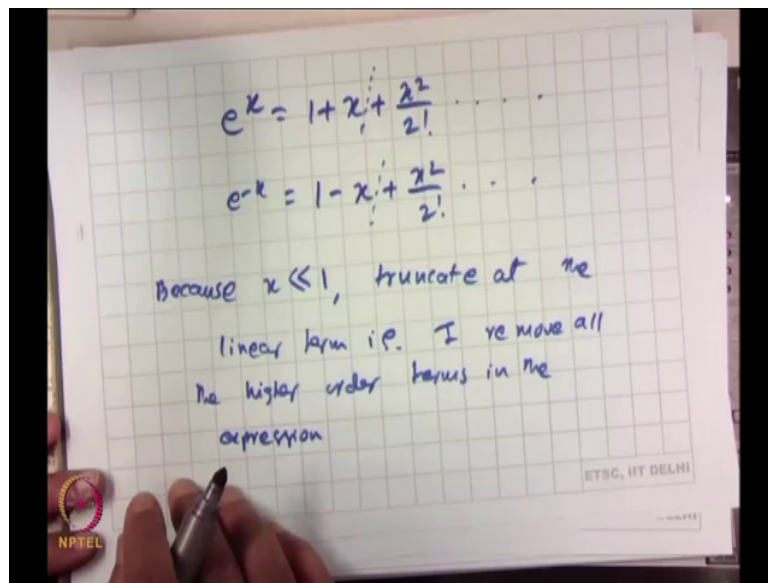 e^x = 1 + x + x²/2! . . . .
e^-x = 1 - x + x²/2! . . .
Because x << 1, truncate at the
linear term i.e. I remove all
the higher order terms in the
expression
ETSC, IIT DELHI
NPTEL